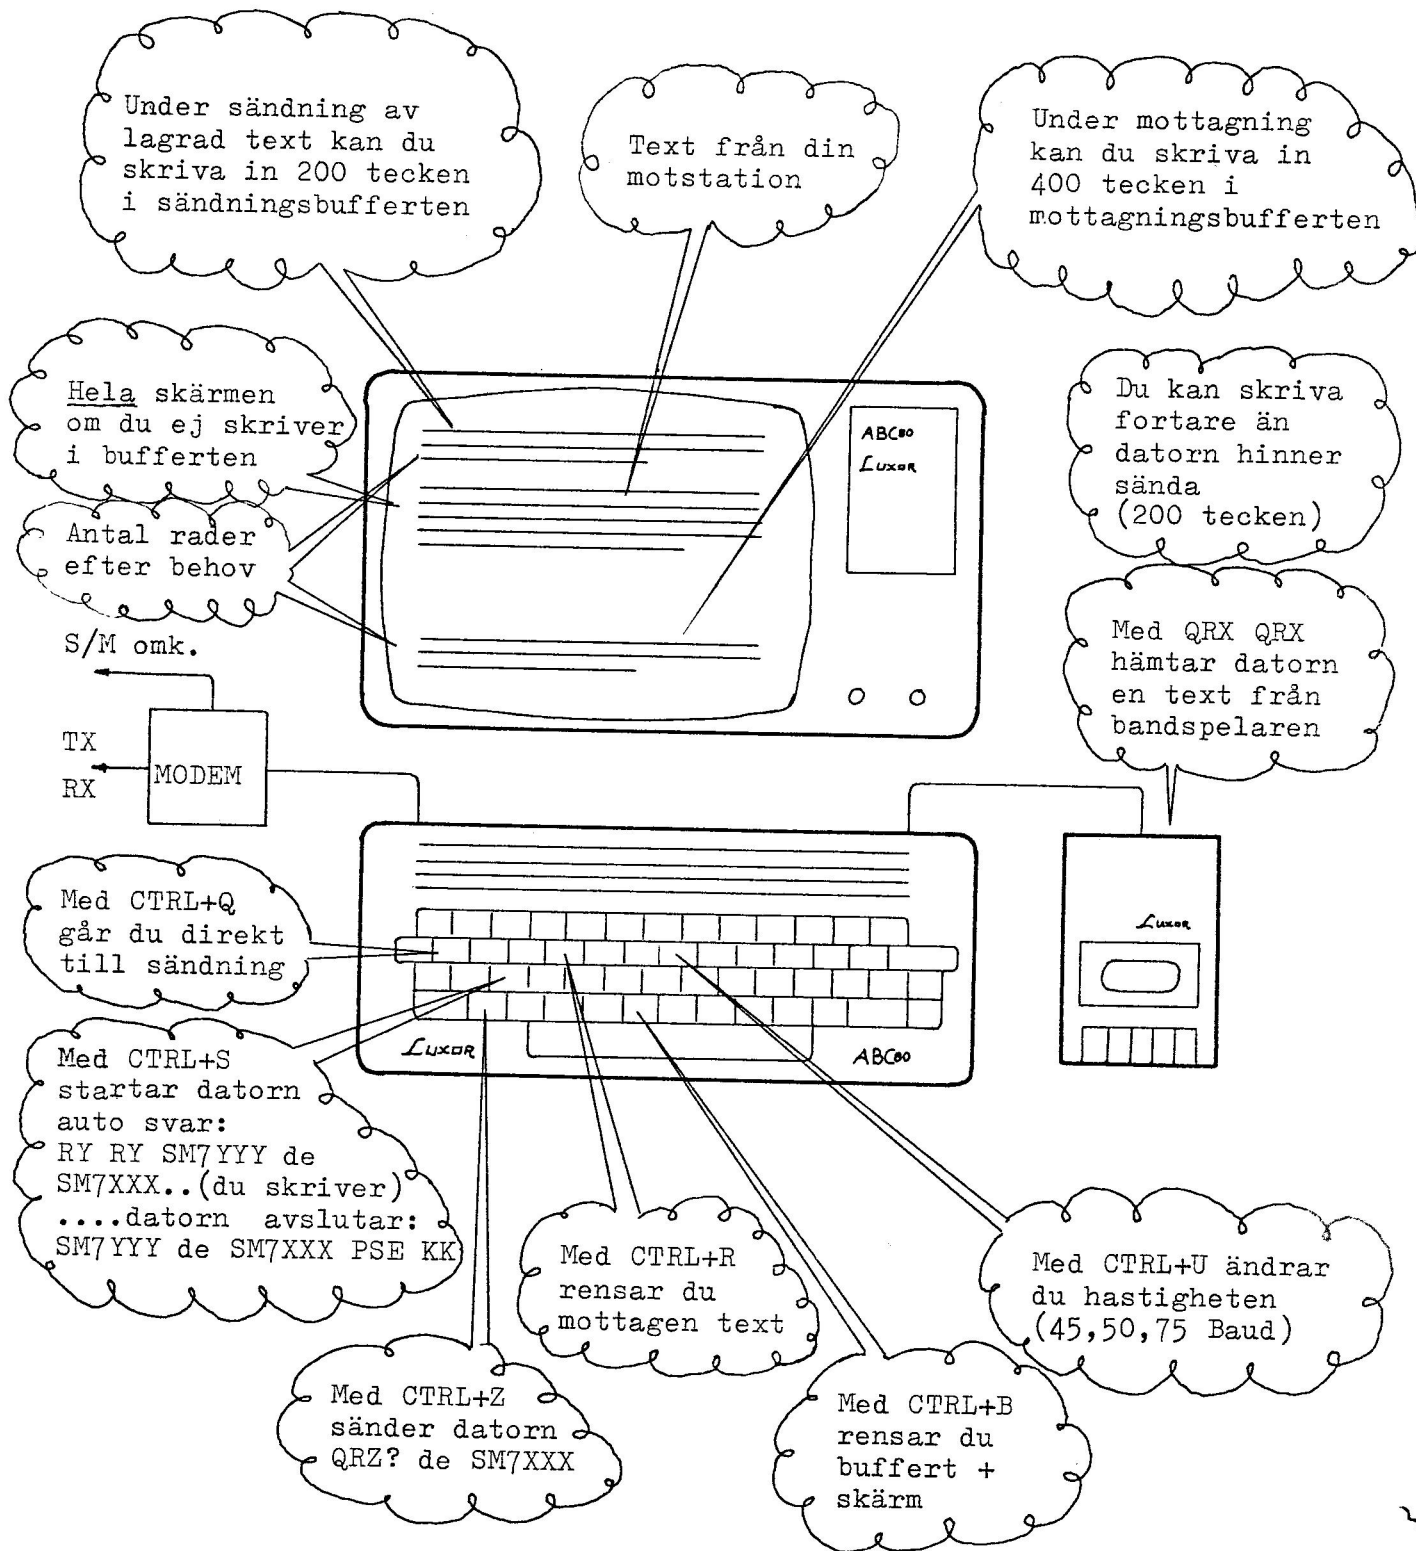 Under sändning av
lagrad text kan du
skriva in 200 tecken
i sändningsbufferten
Text från din
motstation
Under mottagning
kan du skriva in
400 tecken i
mottagningsbufferten
Hela skärmen
om du ej skriver
i bufferten
Antal rader
efter behov
ABC80
Luxor
Du kan skriva
fortare än
datorn hinner
sända
(200 tecken)
Med QRX QRX
hämtar datorn
en text från
bandspelaren
S/M omk.
TX
RX
MODEM
Med CTRL+Q
går du direkt
till sändning
Luxor
Luxor
ABC80
Med CTRL+S
startar datorn
auto svar:
RY RY SM7YYY de
SM7XXX..(du skriver)
....datorn avslutar:
SM7YYY de SM7XXX PSE KK
Med CTRL+R
rensar du
mottagen text
Med CTRL+U ändrar
du hastigheten
(45,50,75 Baud)
Med CTRL+Z
sänder datorn
QRZ? de SM7XXX
Med CTRL+B
rensar du
buffert +
skärm